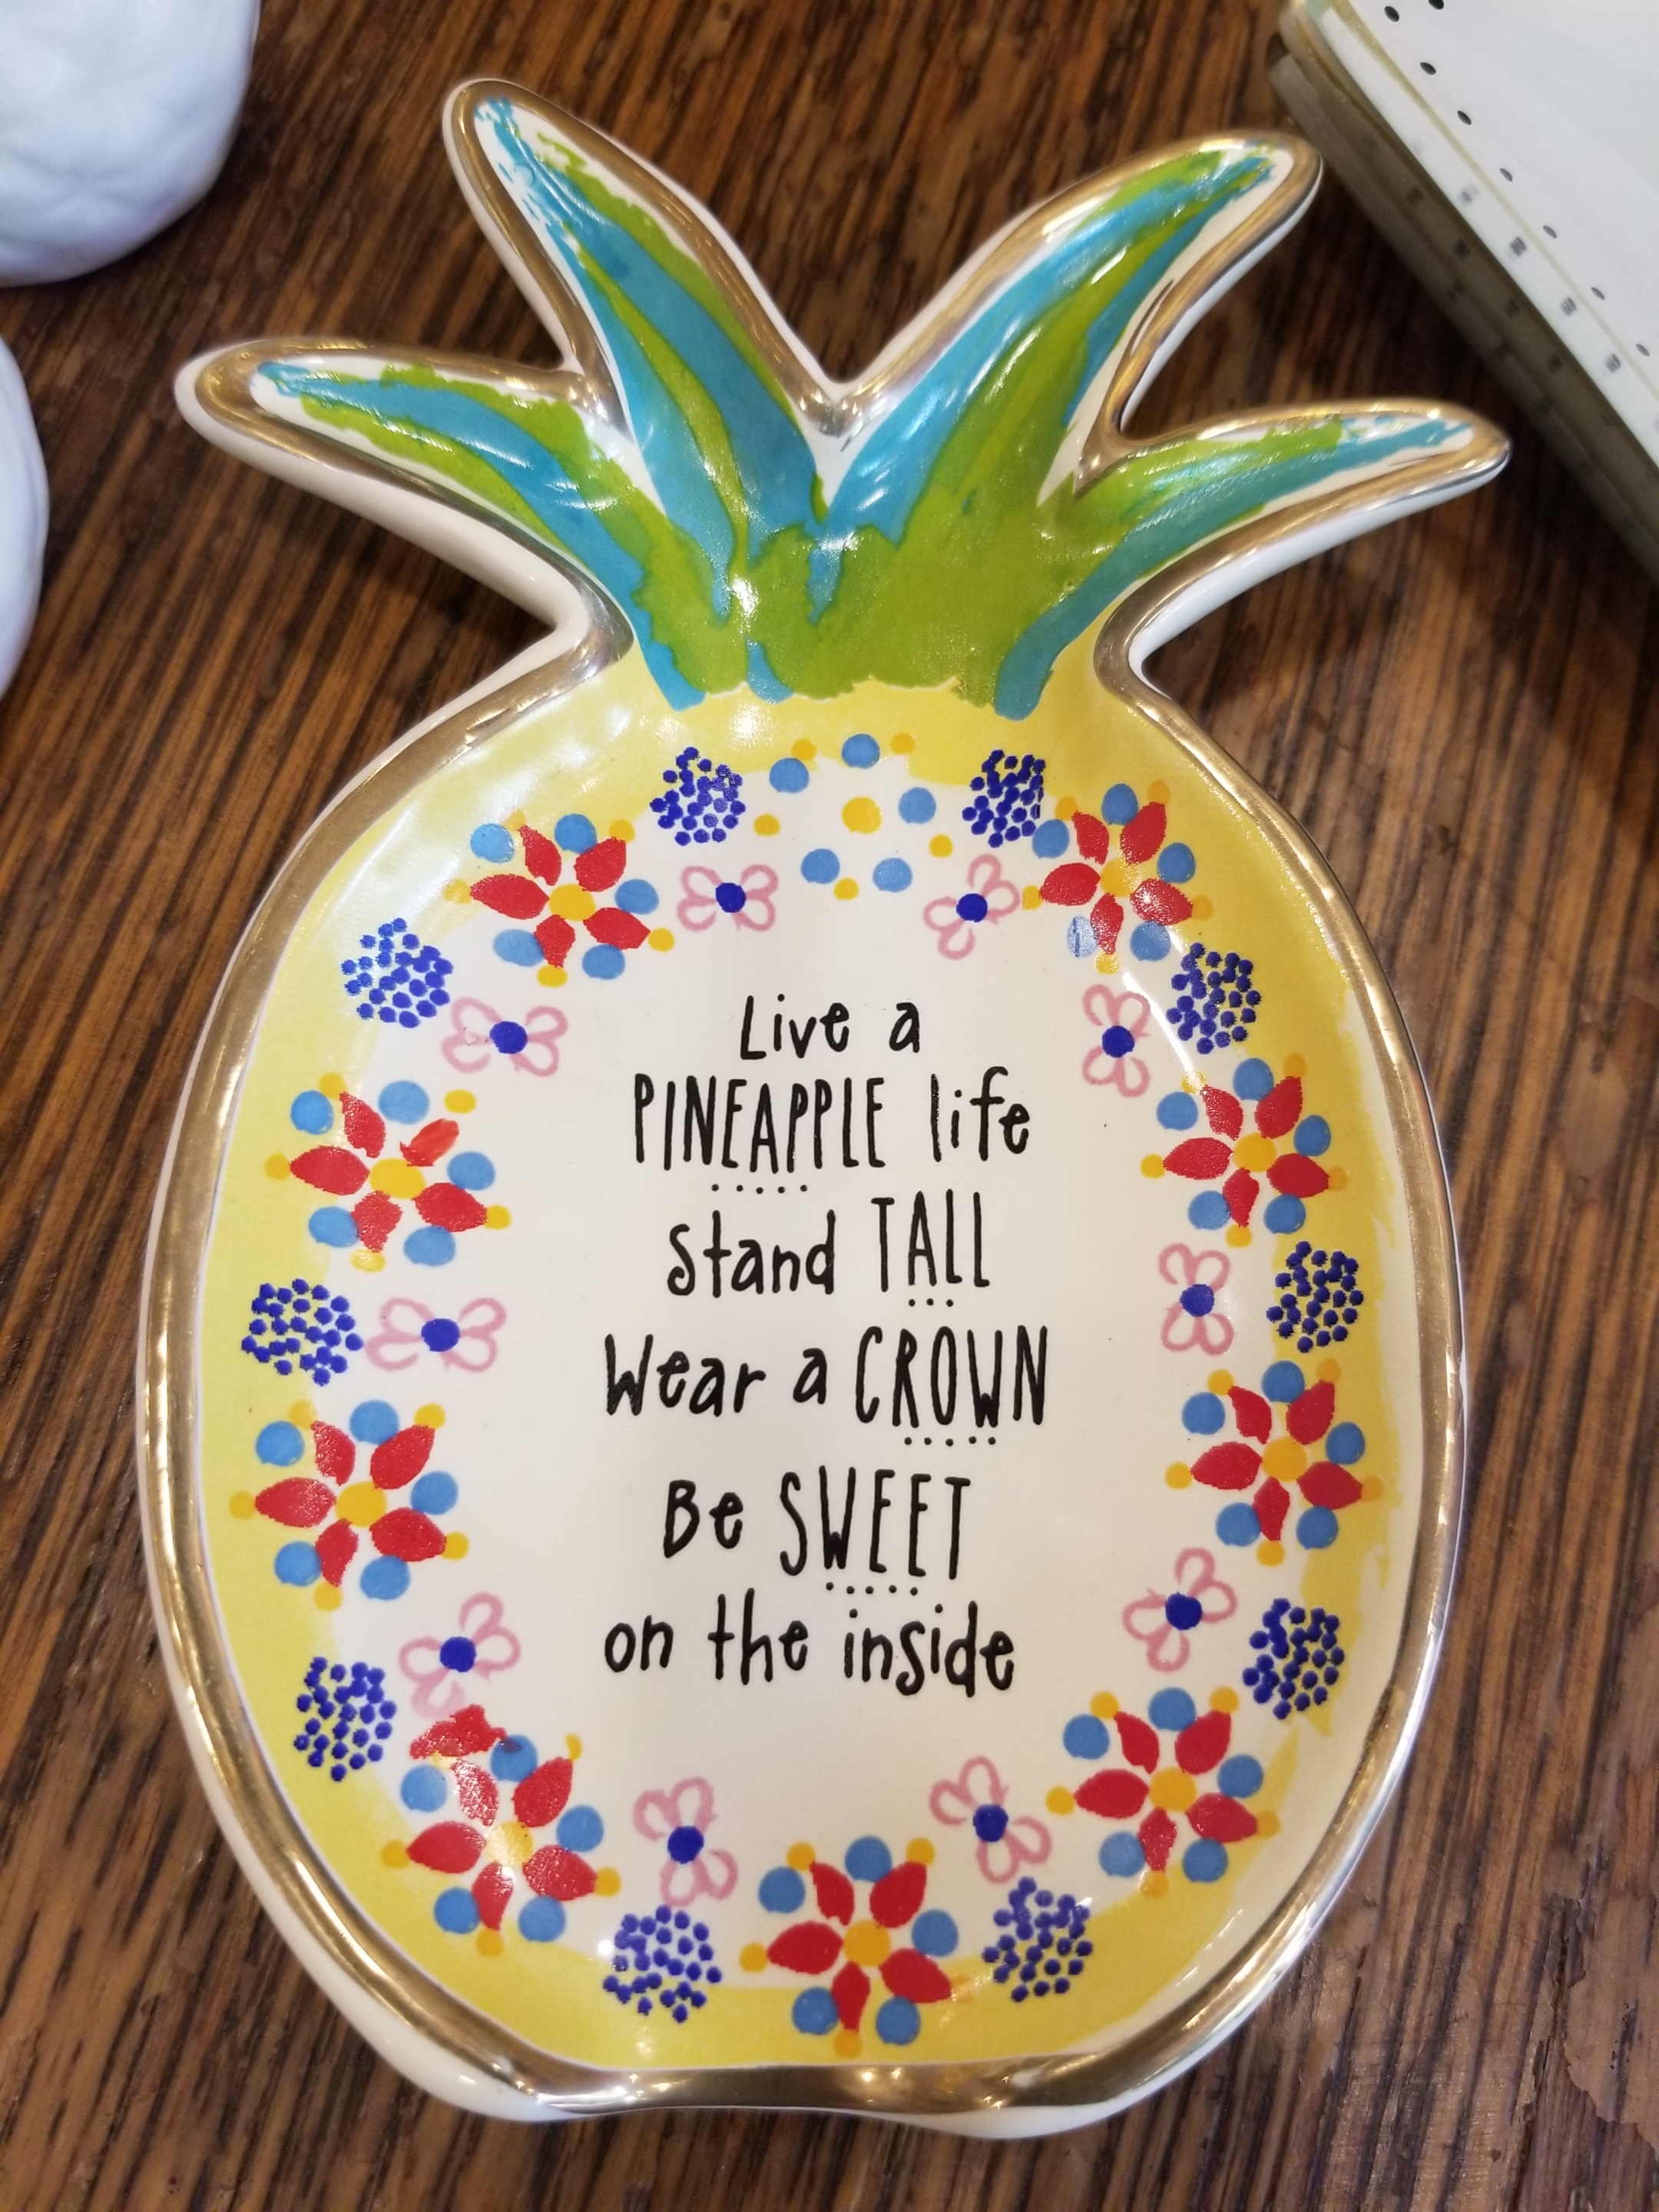 Live a
PINEAPPLE life
stand TALL
Wear a CROWN
Be SWEET
on the inside